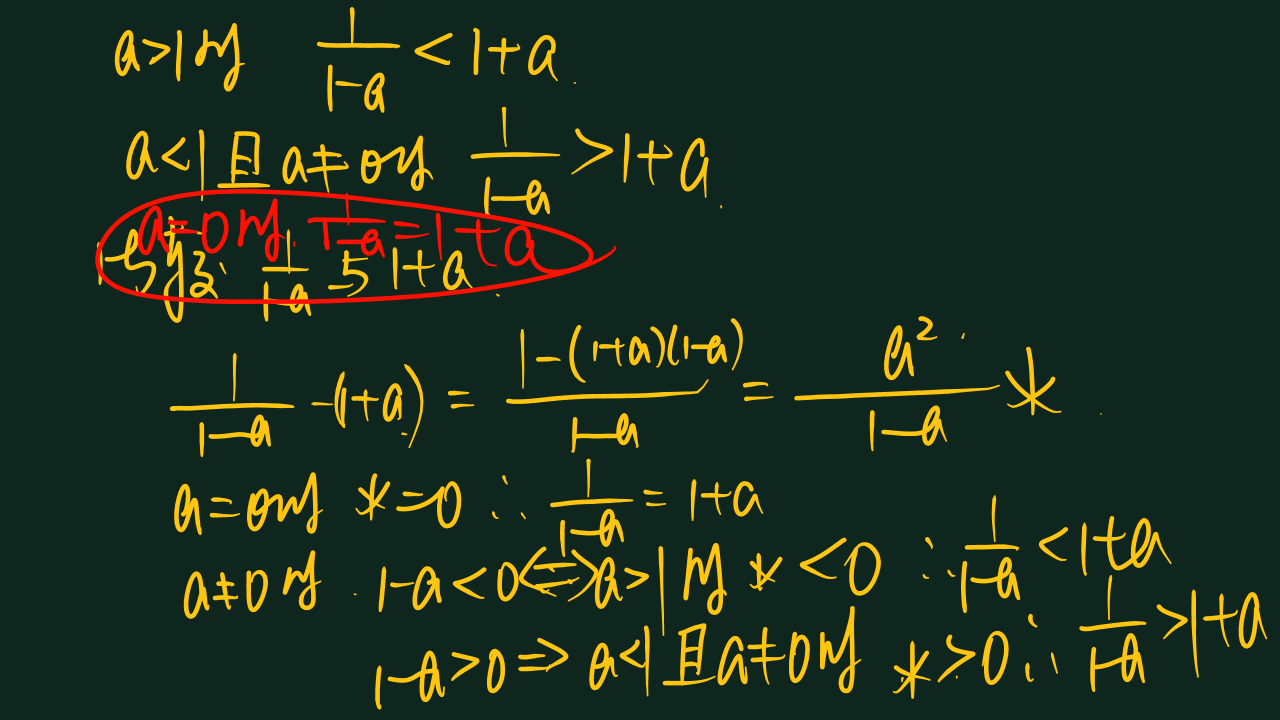 a>1时 1/(1-a) < 1+a.
a<1且a≠0时 1/(1-a) > 1+a.
a=0时. 1/(1-a) = 1+a
1/(1-a) 与 1+a.
1/(1-a) -(1+a) = (1-(1+a)(1-a))/(1-a) = a²/(1-a) *.
a=0时 *=0 ∴ 1/(1-a) = 1+a
a≠0时. 1-a<0⇔a>1时 *<0 ∴ 1/(1-a) < 1+a
1-a>0 ⇒ a<1且a≠0时 *>0 ∴ 1/(1-a) > 1+a